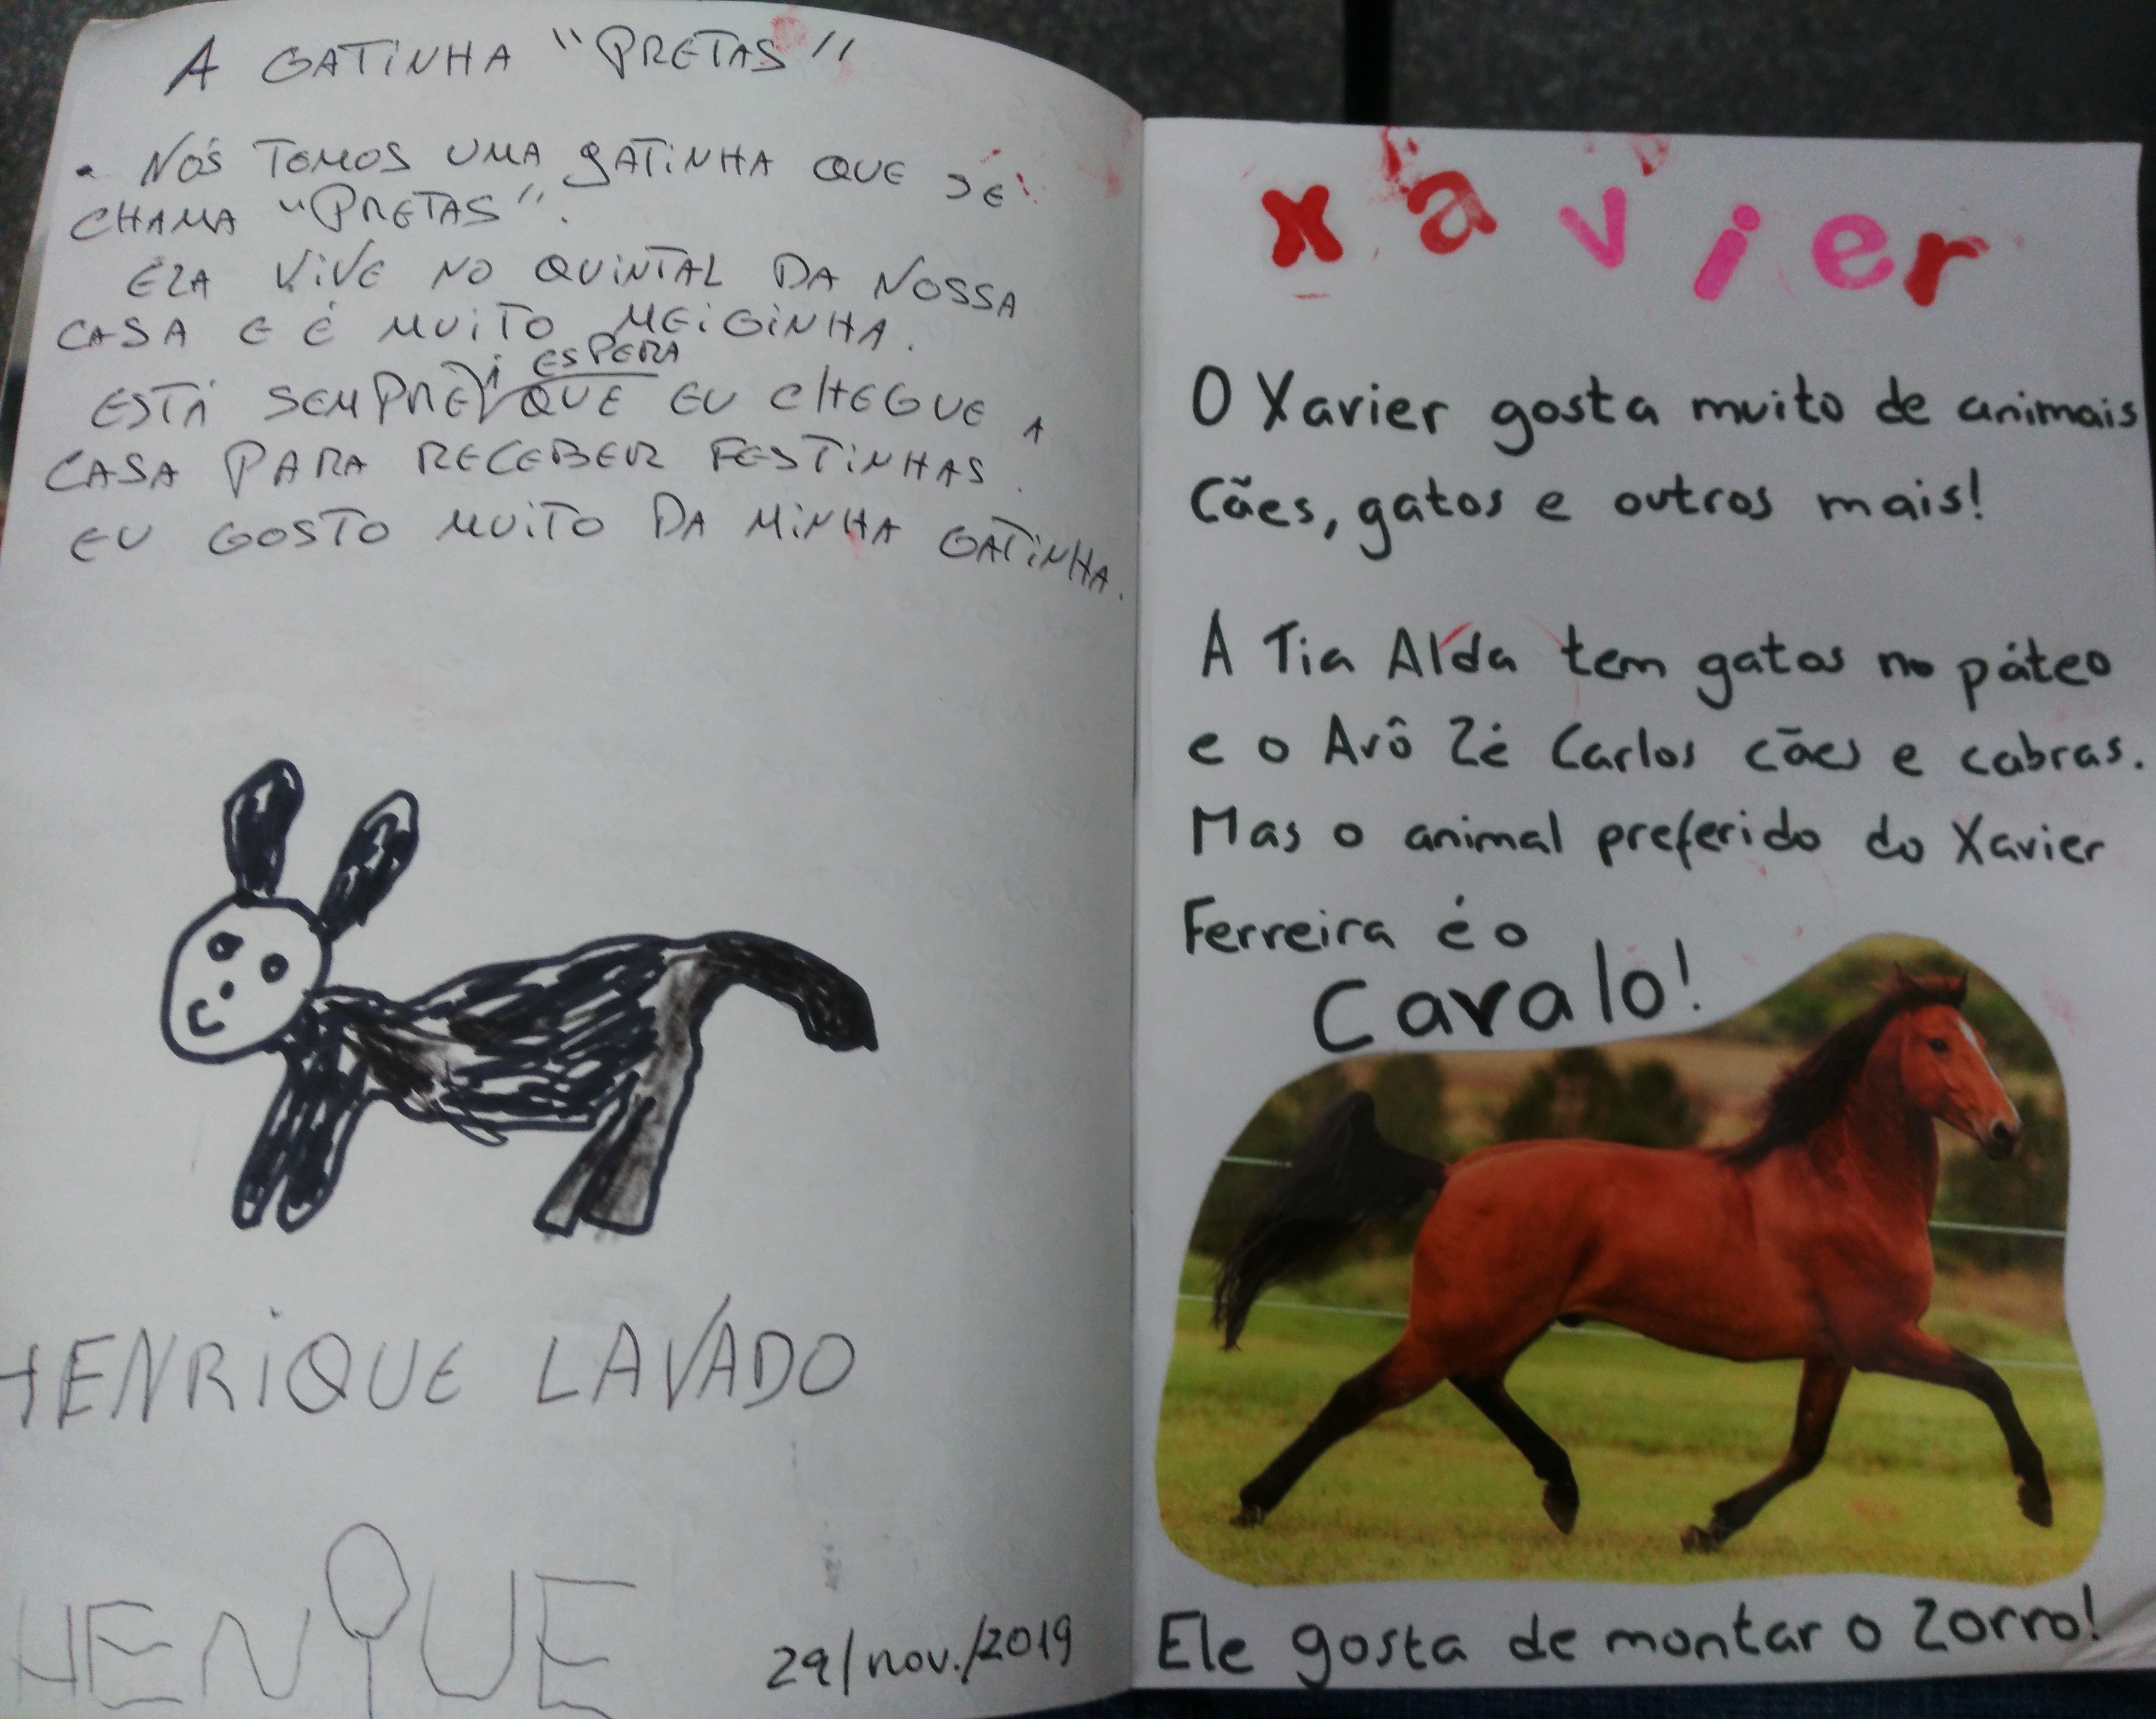 A GATINHA "PRETAS"
. NÓS TEMOS UMA GATINHA QUE SE
CHAMA "PRETAS".
ELA VIVE NO QUINTAL DA NOSSA
CASA E É MUITO MEIGINHA.
À ESPERA
ESTÁ SEMPRE QUE EU CHEGUE A
CASA PARA RECEBER FESTINHAS.
EU GOSTO MUITO DA MINHA GATINHA.
HENRIQUE LAVADO
HENQUE
29/nov./2019
xavier
O Xavier gosta muito de animais
Cães, gatos e outros mais!
A Tia Alda tem gatos no páteo
e o Avô Zé Carlos cães e cabras.
Mas o animal preferido do Xavier
Ferreira é o
Cavalo!
Ele gosta de montar o Zorro!